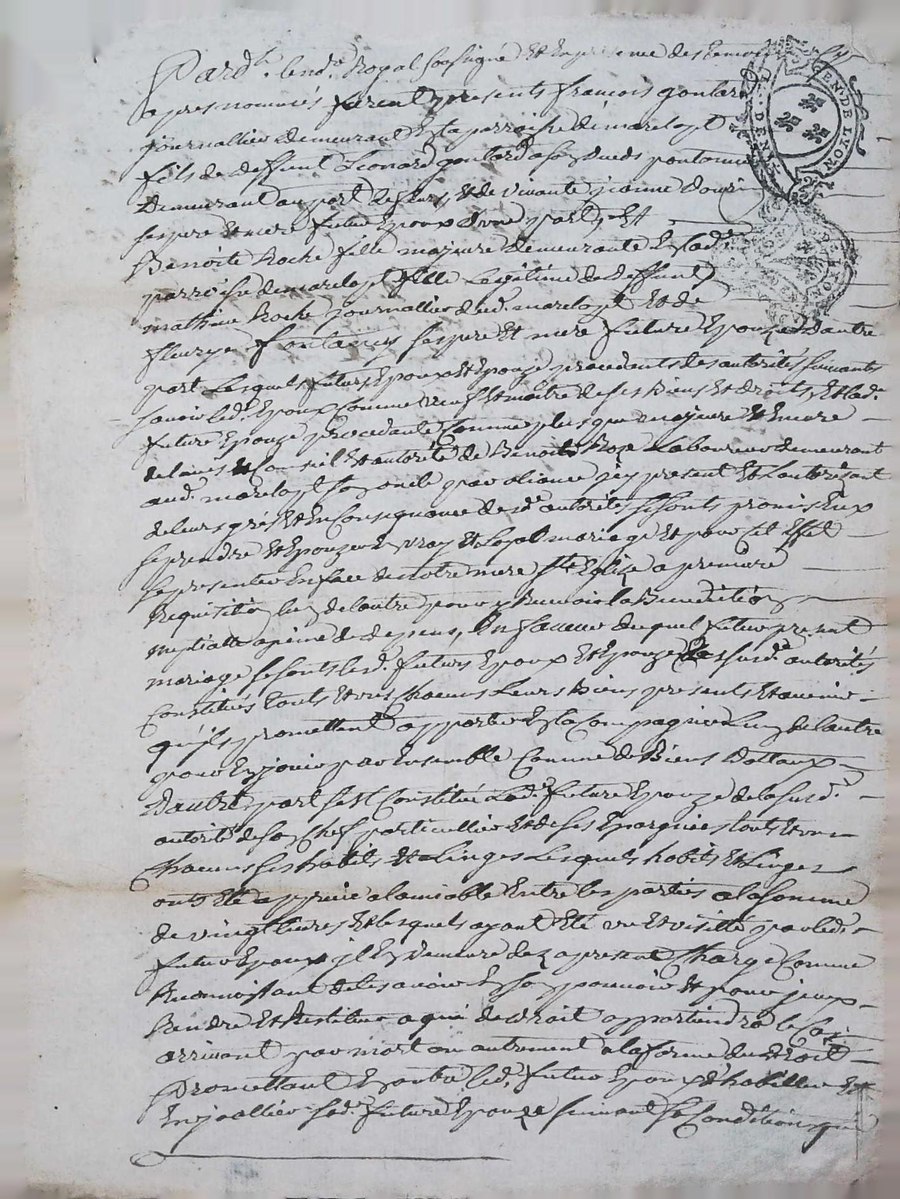 Pard.t le nod.e Royal soussigné Et En presence des temoins
apres nommés furent presents francois goutard
journallier demeurant Es la parroisse de marclopt
fils de deffunt Leonard goutard
Demeurant au port Et de vivante jeanne
ses pere Et mere futur Epoux d'une part, Et
Benoite Roche fille majeure demeurante Es lad.e
parroisse de marclopt fille Legitime de deffunt
mathieu Roche journallier dud. marclopt Et de
fleurye fontaney ses pere Et mere future Epouze d'autre
part Lesquels futurs Epoux Et Epouze procedants des autorités suivants
savoir led. Epoux Comme Et maitre de ses Biens Et droits, Et lad.
future Epouze procedante Comme plus que majeure Et Encore
de l'avis Et Conseil Et autorité de Benoit Roze Laboureur demeurant
aud. marclopt son oncle par aliance icy present Et L'autorisant
de leurs grés Et En Consequance desd. autorités se sont promis Eux
se prendre Et Epouzer En vray Et Loyal mariage Et pour cet Effet
se presenter En face de notre mere s.te Eglize a premiere
Requisition L'un de L'autre pour y Recevoir la Benediction
nuptialle a peine de depens, En faveur duquel futur present
mariage se sont lesd. futurs Epoux Et Epouze des susd.e autorités
Constitués touts Et uns Chacuns Leurs Biens presents Et avenir
qu'ils promettent apporter Es la Compagnie L'un de L'autre
pour En jouir par Ensemble Comme de Biens Dottaux
D'autre part s'est Constituée Lad. future Epouze de la susd.
autorité de son Chef particullier Et de ses Epargnes touts Et uns
Chacuns ses habits Et Linges Lesquels habits Et Linges
onts Eté appreciés a lamiable Entre les parties a la somme
de vingt livres Et lesquels ayant Eté vu Et visité par led.
futur Epoux jl En demeure dez a present Chargé Comme
Reconnoissant de les avoir En son pouvoir Et pour jceux
Rendre Et Restituer a qui de droit appartiendra le Cas
arrivant par mort ou autrement a la forme du Droit
Promettant En outre led. futur Epoux d'habiller Et
Enjoallier sad. future Epouze suivant sa Condition, que
GEN. DE LYON